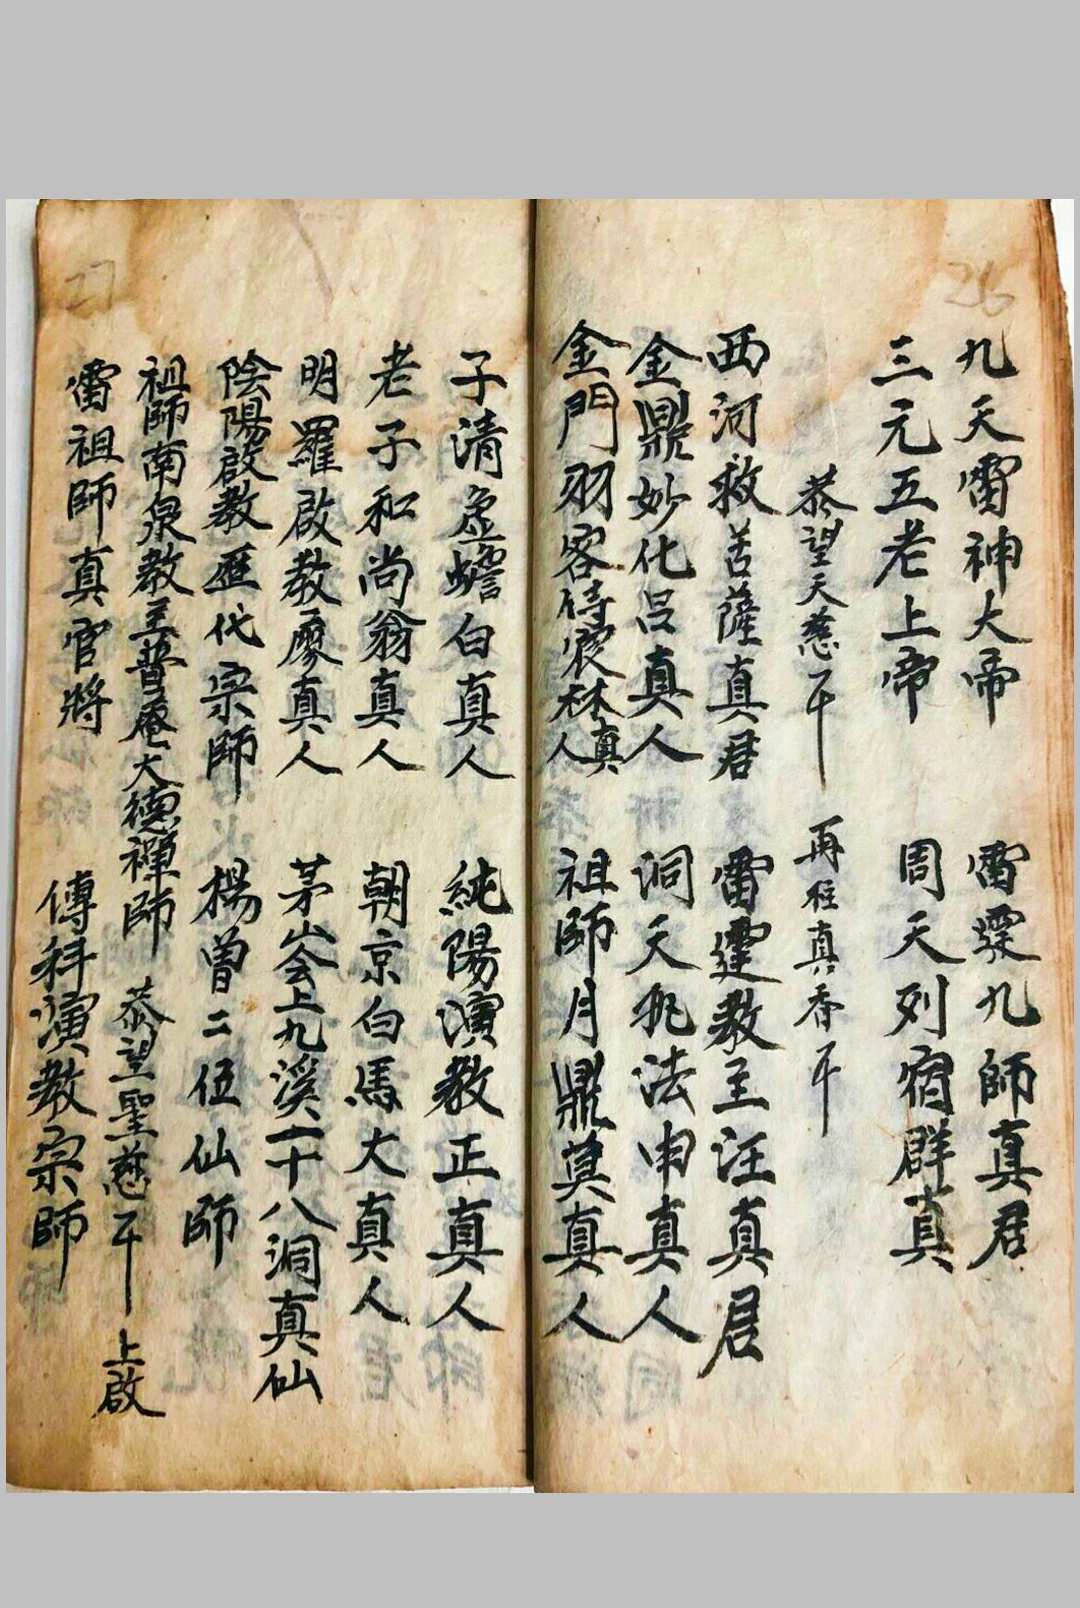 26
九天雷神大帝 雷霆九師真君
三元五老上帝 周天列宿群真
恭望天慈 再炷真香
西河救苦薩真君 雷霆教主汪真君
金鼎妙化呂真人 洞天 法申真人
金門羽客侍宸林真人 祖師月鼎莫真人
27
子清虛蟾白真人 純陽演教正真人
老子和尚翁真人 朝京白馬大真人
明羅啟教廖真人 茅山会上九溪二十八洞真仙
陰陽啟教歷代宗師 楊曾二伍仙師
祖師南泉教主普庵大德禪師 恭望聖慈 上啟
雷祖師真官將 傳科演教宗師